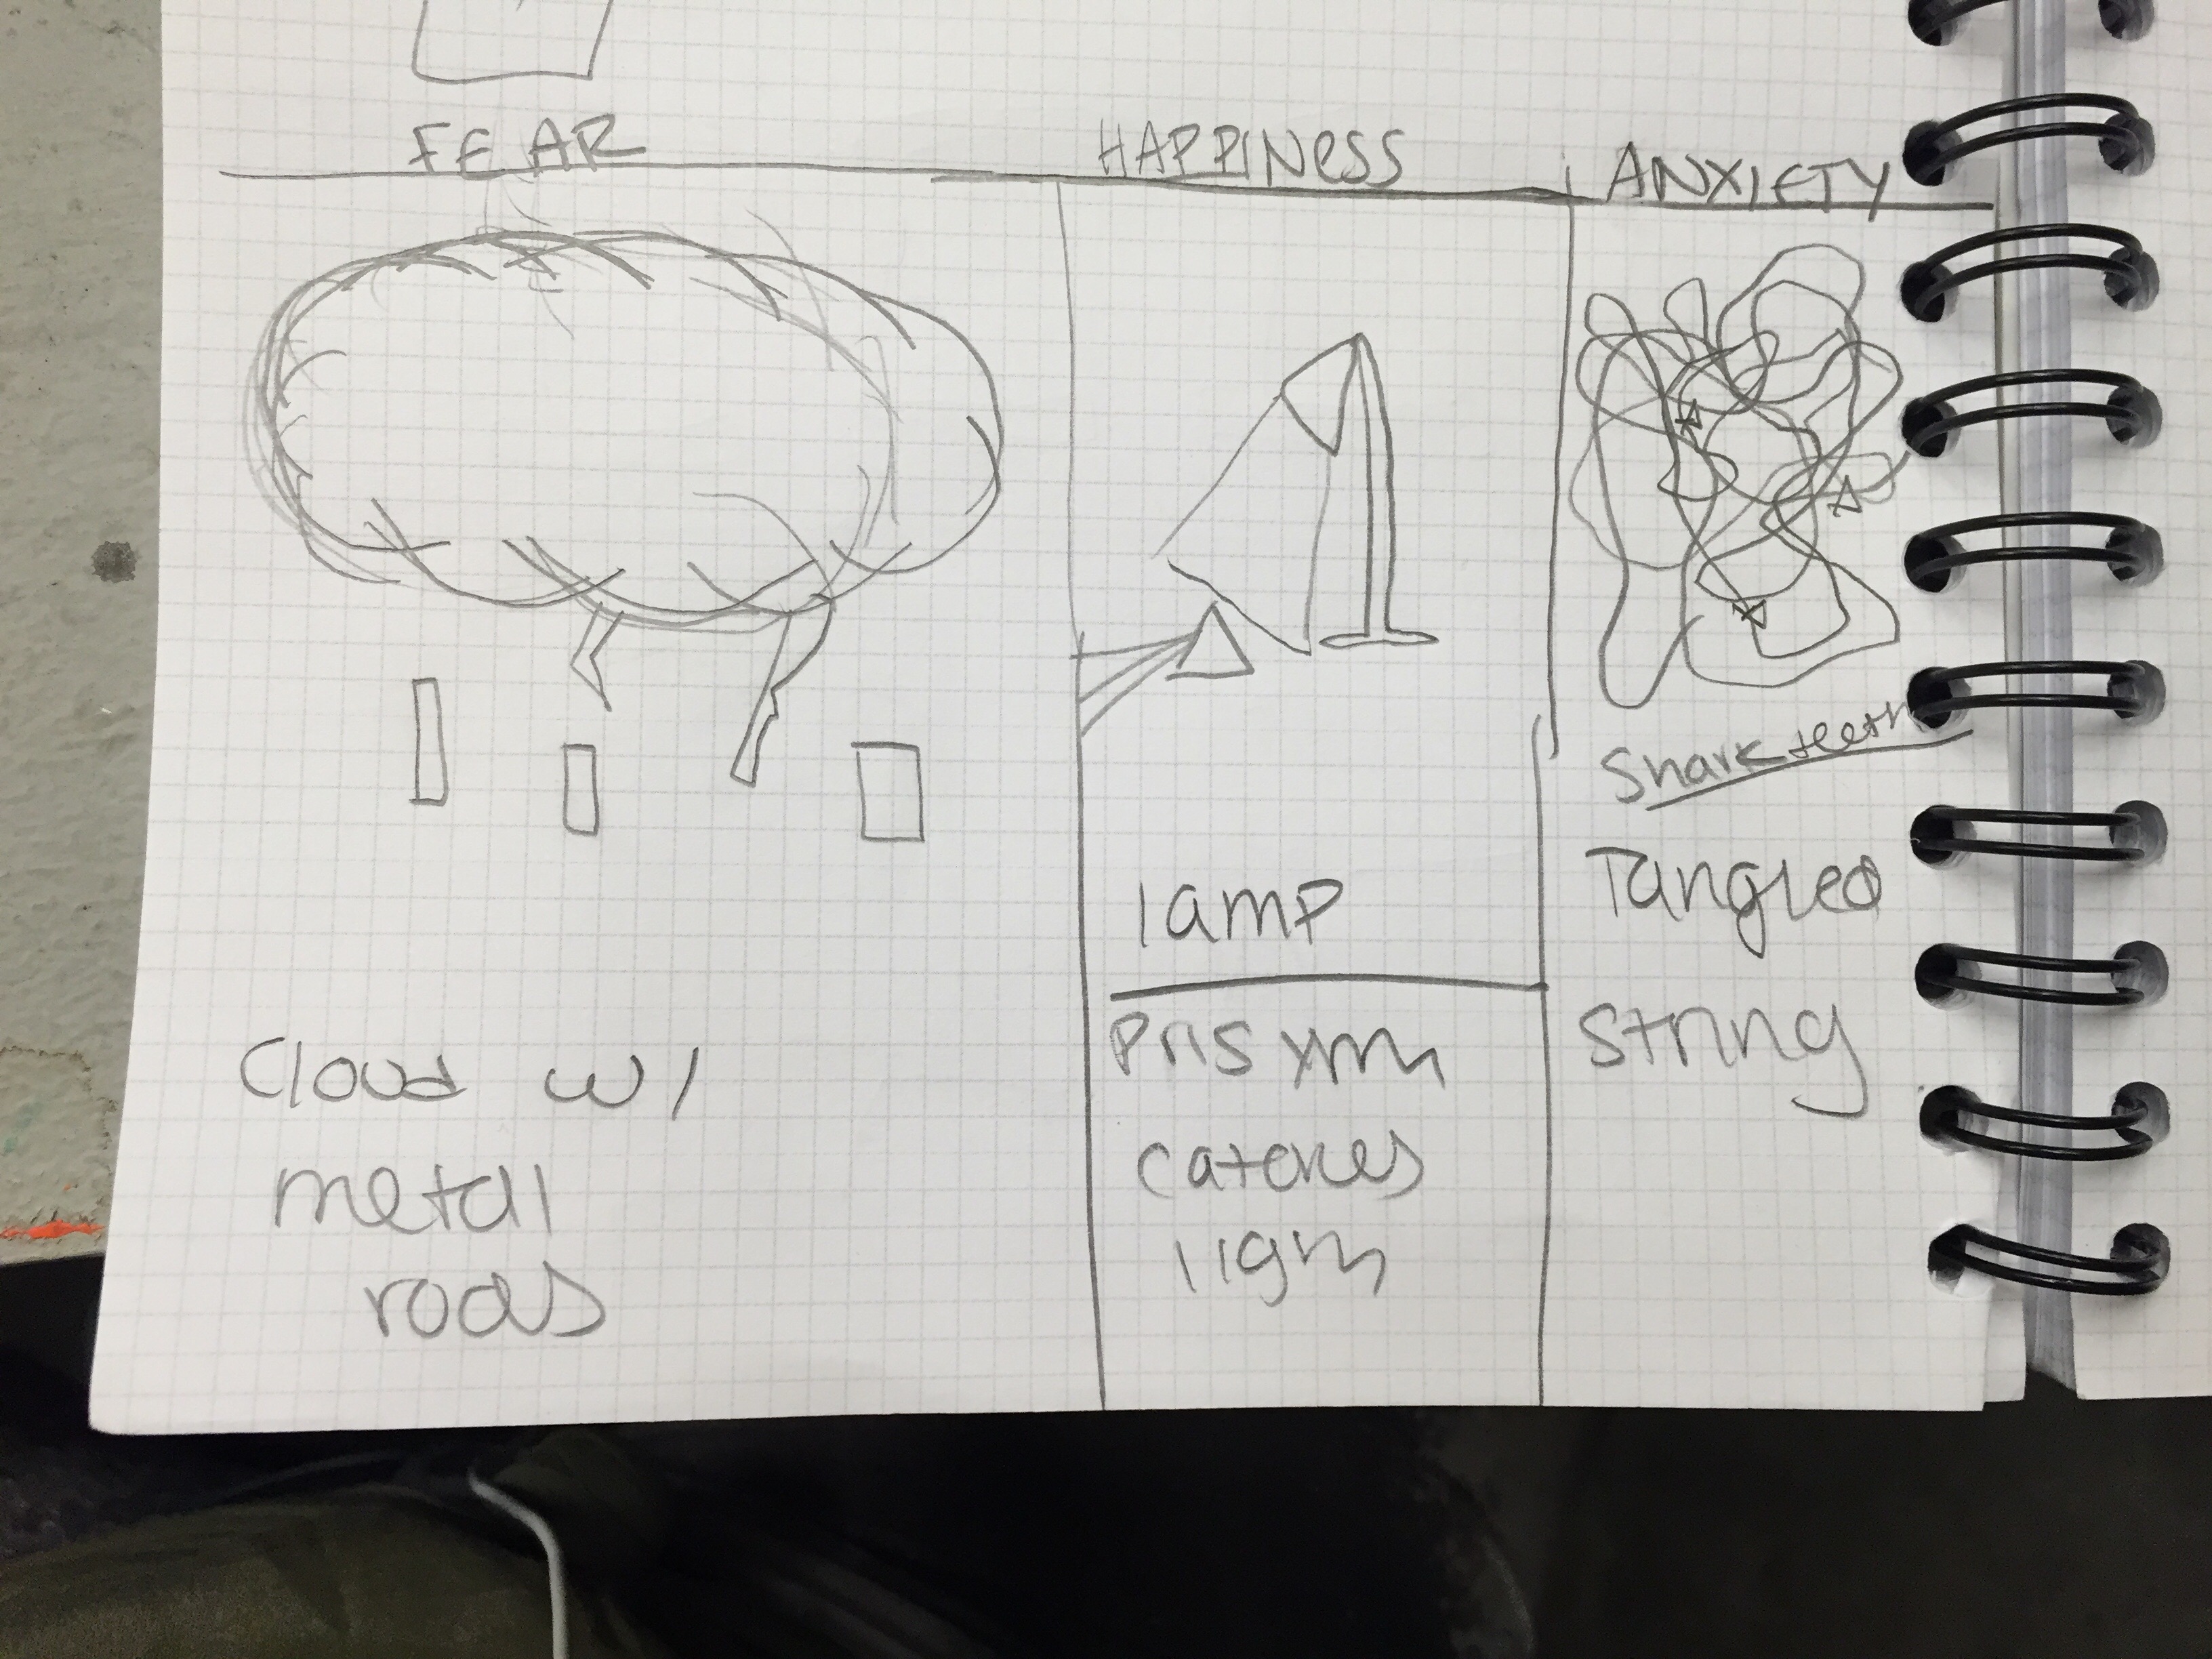 FEAR
HAPPINESS
ANXIETY
Cloud w/
metal
rods
lamp
Prisxm
catches
light
Shark teeth
Tangled
String